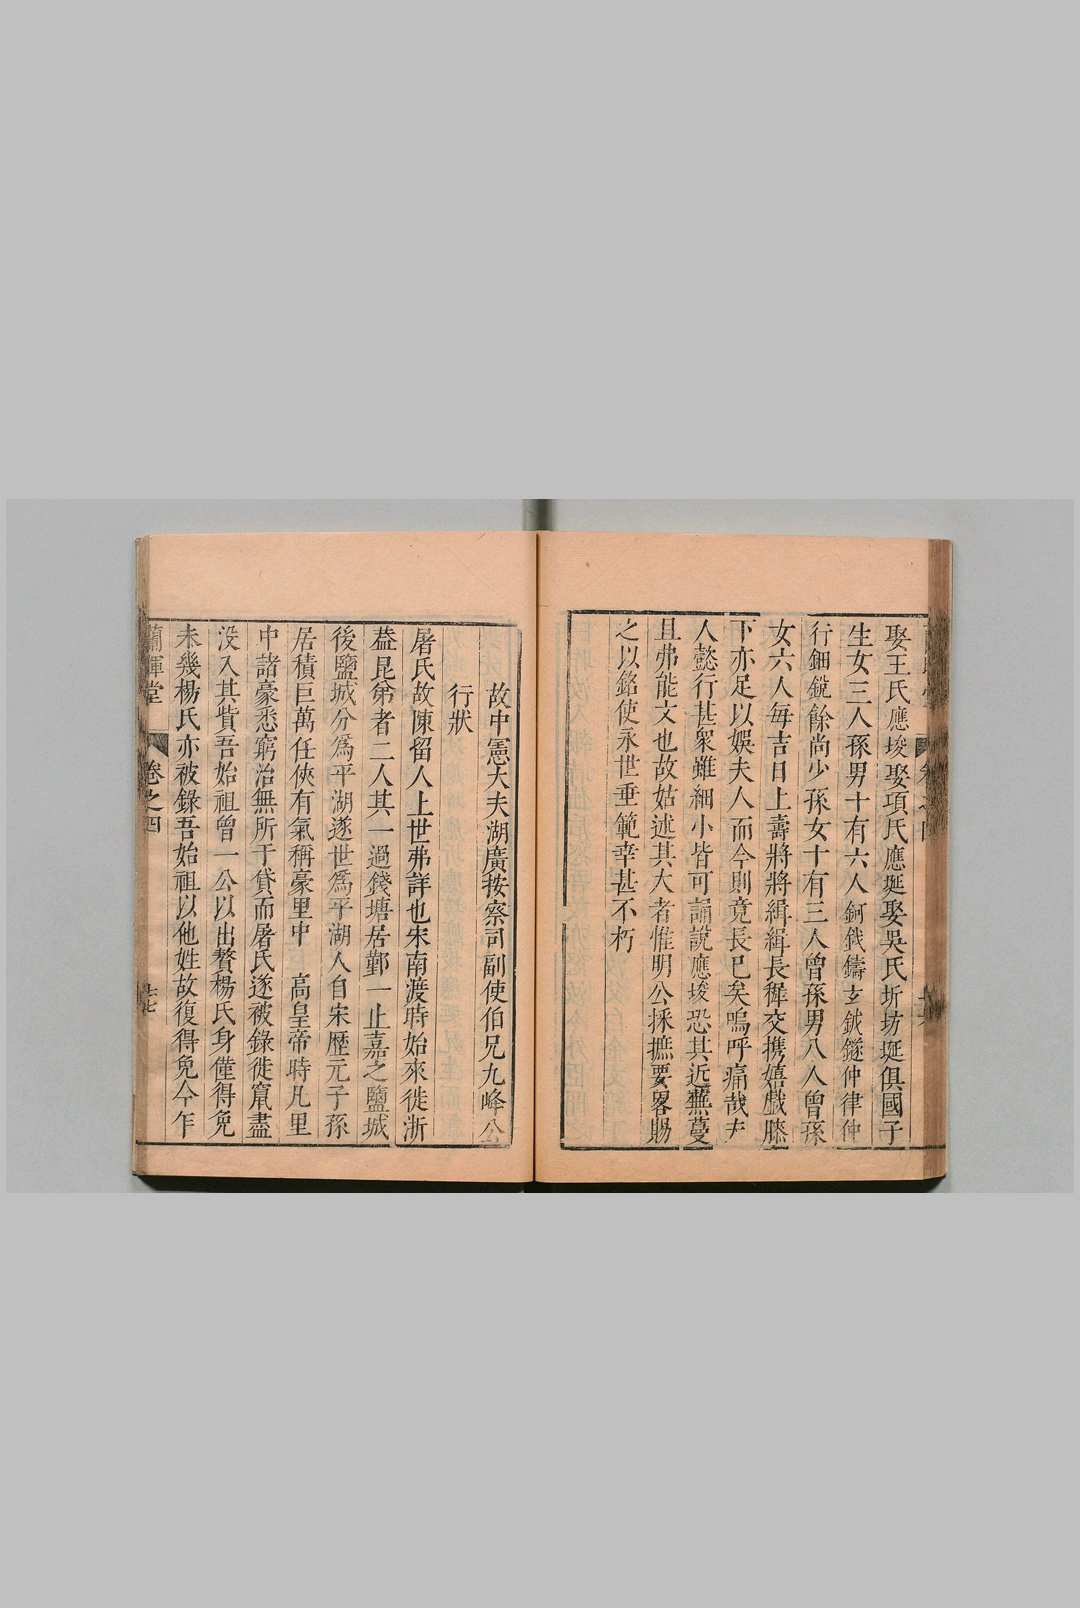 娶王氏應埈娶項氏應埏娶吳氏圻坊埏俱國子
生女三人孫男十有六人鈳鉞鑄玄鉞鐩仲律仲
行鈿鋧餘尚少孫女十有三人曾孫男八人曾孫
女六人每吉日上壽將將緝緝長穉交携嬉戲膝
下亦足以娛夫人而今則竟長已矣嗚呼痛哉夫
人懿行甚衆雖細小皆可誦說應埈恐其近蕪蔓
且弗能文也故姑述其大者惟明公採摭要畧賜
之以銘使永世垂範幸甚不朽
故中憲大夫湖廣按察司副使伯兄九峰公
行狀
屠氏故陳留人上世弗詳也宋南渡時始來徙浙
葢昆弟者二人其一過錢塘居鄞一止嘉之鹽城
後鹽城分爲平湖遂世爲平湖人自宋歷元子孫
居積巨萬任俠有氣稱豪里中 高皇帝時凡里
中諸豪悉窮治無所于貸而屠氏遂被錄徙竄盡
没入其貲吾始祖曾一公以出贅楊氏身僅得免
未幾楊氏亦被錄吾始祖以他姓故復得免今乍
蘭暉堂 卷之四 六七